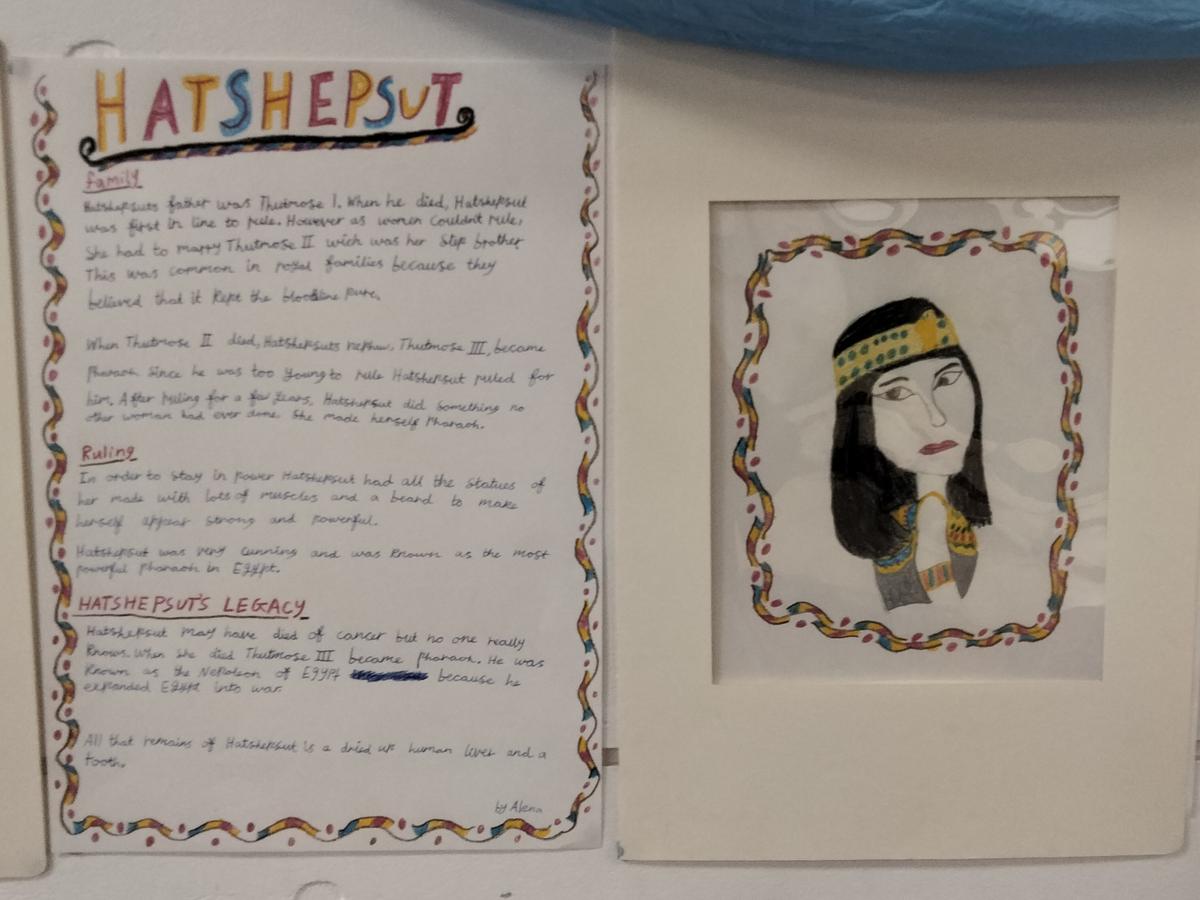 HATSHEPSUT
family
Hatshepsuts father was Thutmose I. When he died, Hatshepsut
was first in line to rule. However as women couldn't rule,
She had to marry Thutmose II wich was her Step brother
This was common in royal families because they
believed that it kept the bloodline pure.
When Thutmose II died, Hatshepsuts nephew, Thutmose III, became
pharaoh since he was too young to rule Hatshepsut ruled for
him. After ruling for a few years, Hatshepsut did something no
other woman had ever done. She made herself Pharaoh.
Ruling
In order to stay in power Hatshepsut had all the statues of
her made with lots of muscles and a beard to make
herself appear strong and powerful.
Hatshepsut was very cunning and was known as the most
powerful pharaoh in Egypt.
HATSHEPSUT'S LEGACY
Hatshepsut may have died of cancer but no one really
knows. When she died Thutmose III became pharaoh. He was
known as the Nepoleon of Egypt because he
expanded Egypt into war.
All that remains of Hatshepsut is a dried up human liver and a
tooth.
by Alena